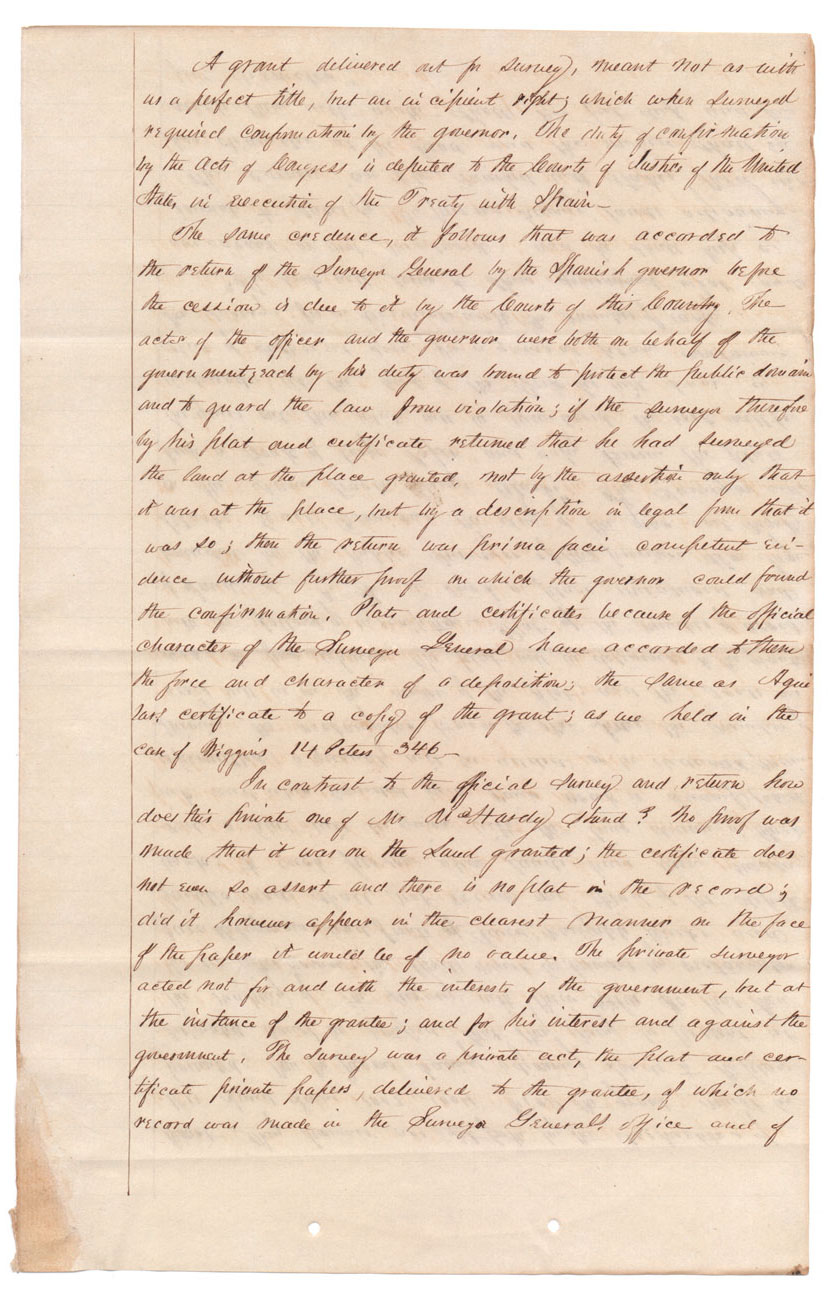 A grant delivered out for survey, meant not as with
us a perfect title, but an incipient right; which when surveyed
required confirmation by the governor. The duty of confirmation
by the acts of Congress is deputed to the Courts of Justice of the United
States in execution of the Treaty with Spain—
The same credence, it follows that was accorded to
the return of the Surveyor General by the Spanish governor before
the cession is due to it by the Courts of this Country. The
acts of the officer and the governor were both on behalf of the
government; each by his duty was bound to protect the public domain
and to guard the law from violation; if the surveyor therefore
by his plat and certificate returned that he had surveyed
the land at the place granted, not by the assertion only that
it was at the place, but by a description in legal form that it
was so; then the return was prima facie competent evi-
dence without further proof on which the governor could found
the confirmation. Plats and certificates because of the official
character of the Surveyor General have accorded to them
the force and character of a deposition; the same as Agui
lars certificate to a copy of the grant; as we held in the
case of Wiggins 14 Peters 346—
In contrast to the official survey and return how
does this private one of Mr McHardy stand? No proof was
made that it was on the Land granted; the certificate does
not even so assert and there is no plat in the record;
did it however appear in the clearest manner on the face
of the paper it would be of no value. The private surveyor
acted not for and with the interests of the government, but at
the instance of the grantee; and for his interest and against the
government. The survey was a private act, the plat and cer-
tificate private papers, delivered to the grantee, of which no
record was made in the Surveyor Generals office and of